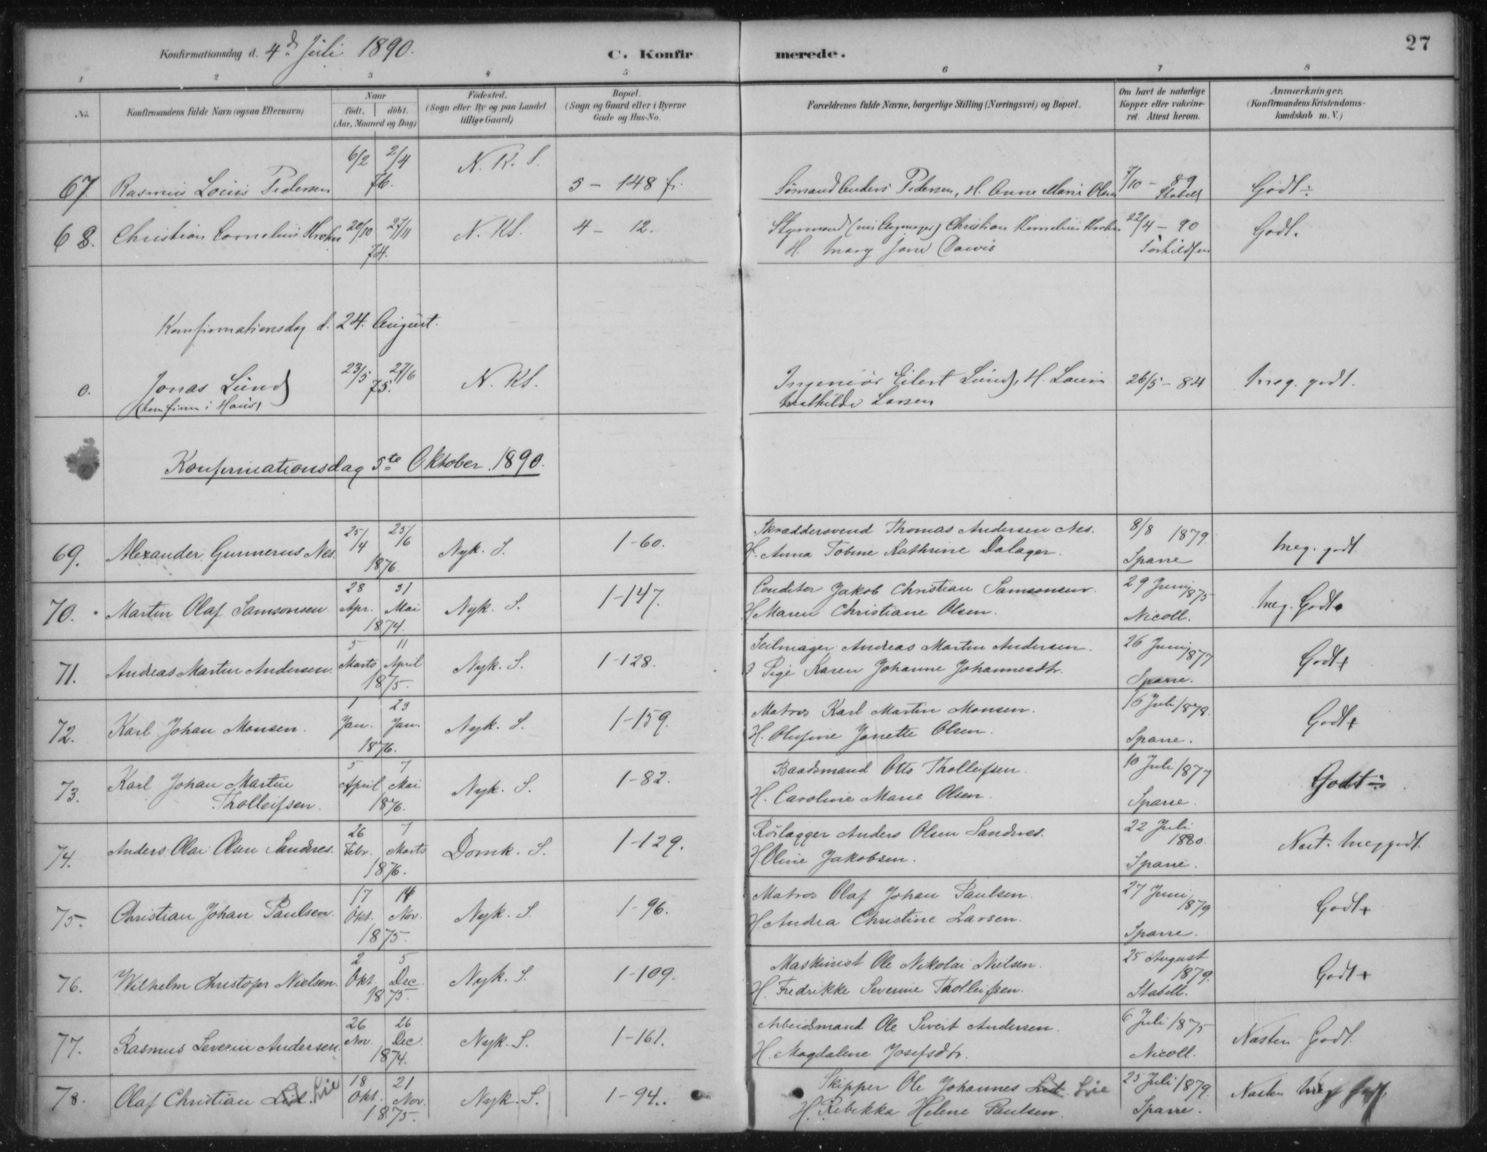 Konfirmationsdag d. 4de Juli 1890.
C. Konfirmerede.
27
1 2 3 4 5 6 7 8
No.
Konfirmandens fulde Navn (ogsaa Efternavn)
Naar
født. døbt.
(Aar, Maaned og Dag)
Fødested.
(Sogn eller By og paa Landet
tillige Gaard)
Bopæl.
(Sogn og Gaard eller i Byerne
Gade og Hus-No.
Forældrenes fulde Navne, borgerlige Stilling (Næringsvei) og Bopæl.
Om havt de naturlige
Kopper eller vaksine-
ret. Attest herom.
Anmærkninger.
(Konfirmandens Kristendoms-
kundskab m. V.)
6/2 2/4 N. K. S.
67. Rasmus Louis Pedersen 76. 5 - 148 f. Sømand Anders Pedersen, H. Anne Marie Olsen 7/10 - 89 Godt ÷
Stabell
68. Christian Cornelius Krohn 20/10 27/11 N. KS. 4 - 12. Styrmand Christian Kornelius Krohn 22/4 - 90 Godt.
74. H. Mary Jane Davis
Konfirmationsdag d. 24. August.
0. Jonas Lund 23/5 27/6 75. N. KS. Ingeniør Eilert Lund, H. Louise 26/5 - 84 Meg. godt.
Mathilde Larsen
Konfirmationsdag 5te Oktober 1890.
69. Alexander Gunnerus Nes. 25/4 25/6 1876. Nyk. S. 1-60. Skraddersvend Thomas Andersen Nes. 8/8 1879 Meg. godt
H. Anna Tobine Kathrine Dalager. Sparre
70. Martin Olaf Samsonsen 28 Apr. 31 Mai 1874. Nyk. S. 1-147. Conditor Jakob Christian Samsonsen. 29 Juni 1875 Meg. Godt.
H Maren Christiane Olsen. Nicoll.
71. Andreas Martin Andersen. 5 Marts 11 April 1875. Nyk. S. 1-128. Seilmager Andreas Martin Andersen. 26 Juni 1877 Godt+
Pige Karen Johanne Johannesdtr. Sparre.
72. Karl Johan Monsen. 1 Jan. 23 Jan. 1876. Nyk. S. 1-159. Matros Karl Martin Monsen. 16 Juli 1878. Godt+
H. Olufine Janette Olsen. Sparre.
73. Karl Johan Martin 5 April 7 Mai 1876. Nyk. S. 1-82. Baadsmand Otto Tholleifsen. 10 Juli 1877 Godt ÷
Tholleifsen. H. Caroline Marie Olsen. Sparre.
74. Anders Olai Olsen Sandnes. 26 Febr. 7 Marts 1876. Domk. S. 1-129. Anders Olsen Sandnes. 22 Juli 1880. Næst. Meg godt.
H Oline Jakobsen. Sparre.
75. Christian Johan Paulsen 17 Okt. 14 Nov. 1875. Nyk. S. 1-96. Matros Olaf Johan Paulsen. 27 Juni 1879 Godt+
H Andrea Christine Larsen. Sparre.
76. Wilhelm Christofer Nielsen 2 Okt. 5 Dec. 1875. Nyk. S. 1-109. Maskinist Ole Nikolai Nielsen. 25 August 1879. Godt+
H. Fredrikke Severine Tholleifsen. Stabell.
77. Rasmus Severin Andersen 26 Nov. 26 Dec. 1874. Nyk. S. 1-161. Arbeidsmand Ole Sivert Andersen. 6 Juli 1875 Næsten Godt.
H. Magdalene Josefsdtr. Nicoll.
78. Olaf Christian Lie 18 Okt. 21 Nov. 1875. Nyk. S. 1-94. Skipper Ole Johannes Lie 25 Juli 1879. Næsten Meg godt.
H. Rebekka Helene Paulsen. Sparre.